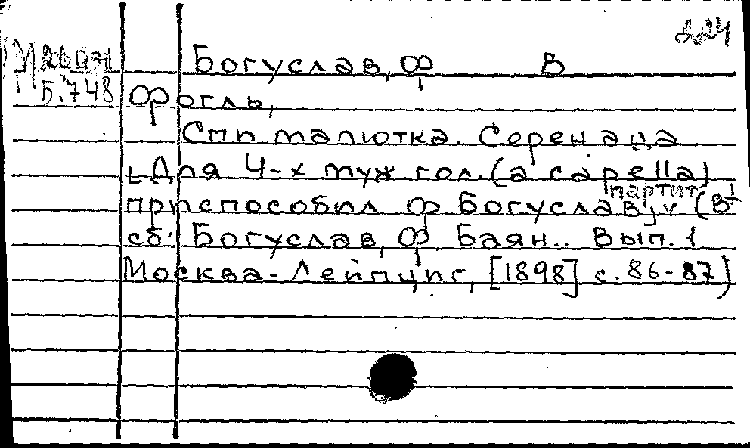 224
Богуслав, Ф В
Б.748 Фогль,
Спи малютка. Серенада
[Для 4-х муж гол. (a capella)
партит.
приспособил Ф Богуслав], (В
сб: Богуслав, Ф. Баян.. Вып. 1
Москва-Лейпциг, [1898] с. 86-87)